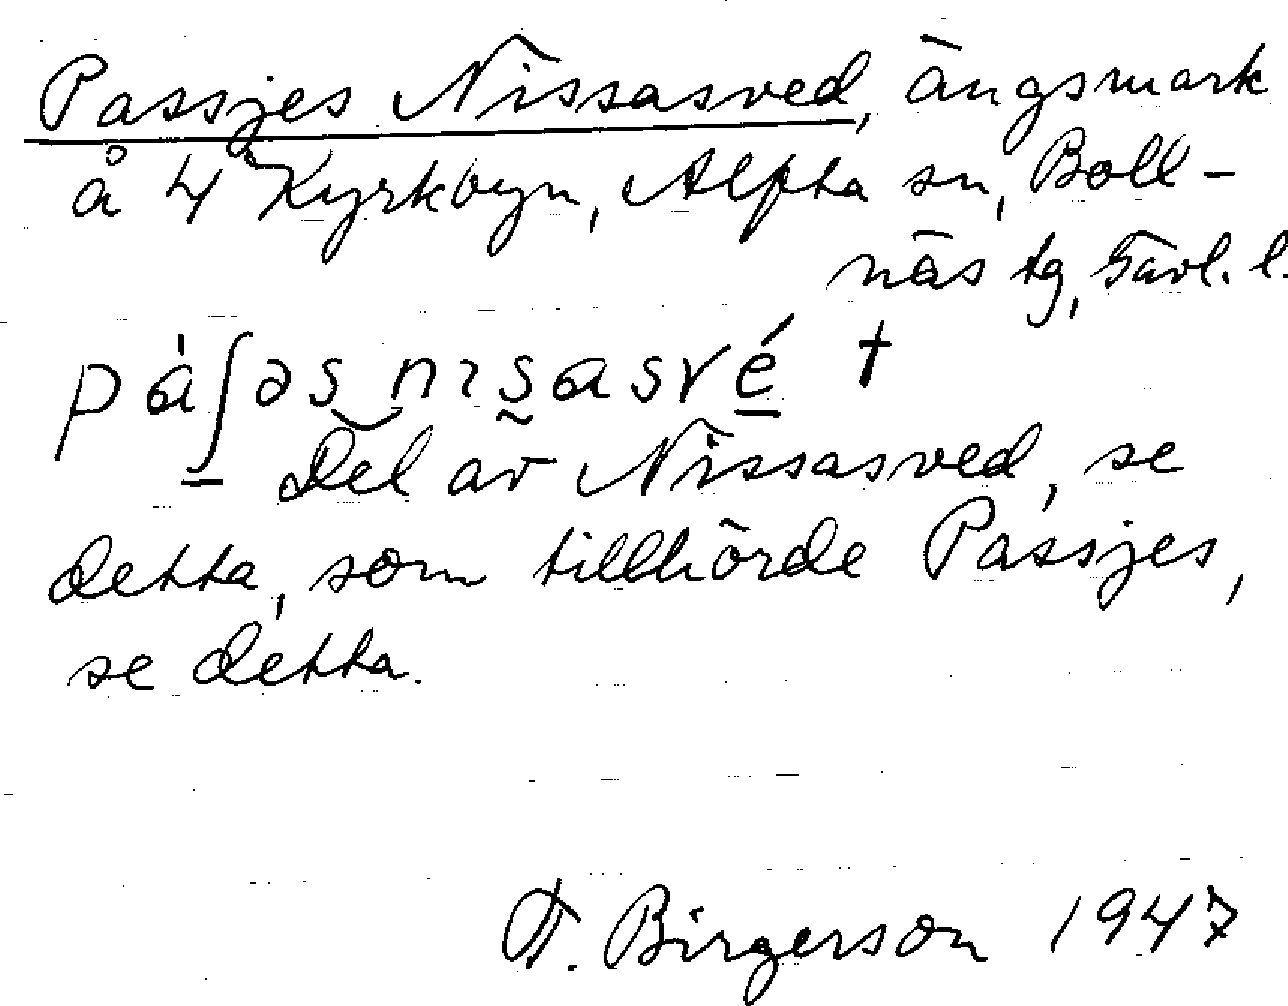 Passjes Nissasved, ängsmark
å 4 Kyrkbyn, Alfta sn, Boll-
näs tg, Gävl. l.
pá∫əs nɪsasvé †
Del av Nissasved, se
detta, som tillhörde Passjes,
se detta.
F. Birgerson 1947